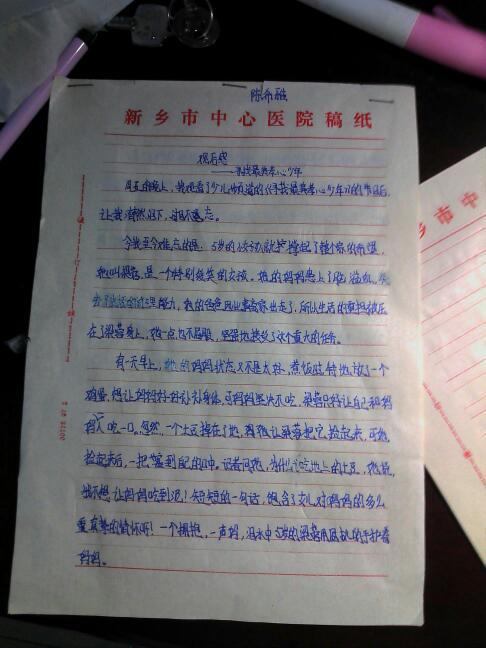 陈希融
新乡市中心医院稿纸
观后感
——寻找最美孝心少年
周五的晚上，我观看了少儿频道的《寻找最美孝心少年》的节目后，
让我潸然泪下，过目不忘。
令我至今难忘的是，5岁的女孩就护撑起了整个家的希望，
她叫，是一个特别爱笑的女孩。她的妈妈患上了脑溢血，失
去了生活的能力，她的爸爸因此离家出走了，所以生活的重担被压
在了身上，她一点也不屈服，坚强地接受了这个重大的任务。
有一天早上，她的妈妈状态又不是太好，煮饭时特地放了一个
鸡蛋，想让妈妈好好补补身体，可妈妈坚决不吃，只好让自己和妈
妈一人吃一口。忽然，一个土豆掉在了地，妈妈让把它捡起来，可她
捡起来后，一把塞到自己的口中。记者问她，为什么吃地上的土豆，她说，
她不想让妈妈吃到泥！短短的一句话，饱含了女儿对妈妈的多么
重真挚的情怀啊！一个拥抱，一声妈，泪水中5岁的用的手护着
妈妈。
新乡市中